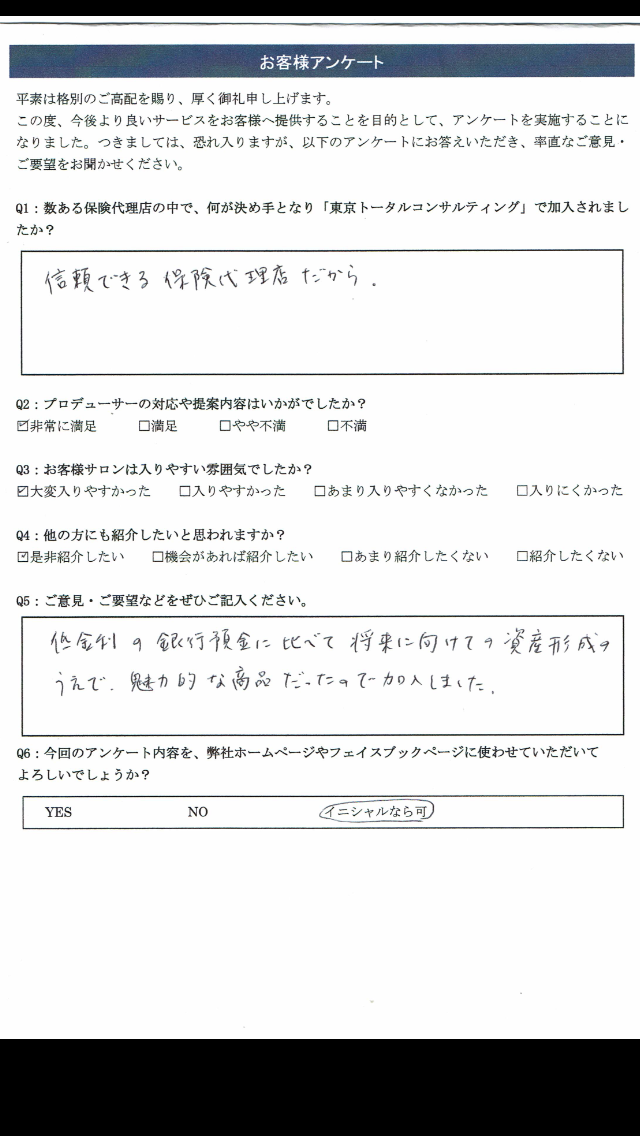 お客様アンケート
平素は格別のご高配を賜り、厚く御礼申し上げます。
この度、今後より良いサービスをお客様へ提供することを目的として、アンケートを実施することに
なりました。つきましては、恐れ入りますが、以下のアンケートにお答えいただき、率直なご意見・
ご要望をお聞かせください。
Q1：数ある保険代理店の中で、何が決め手となり「東京トータルコンサルティング」で加入されまし
たか？
信頼できる保険代理店だから。
Q2：プロデューサーの対応や提案内容はいかがでしたか？
☑非常に満足 □満足 □やや不満 □不満
Q3：お客様サロンは入りやすい雰囲気でしたか？
☑大変入りやすかった □入りやすかった □あまり入りやすくなかった □入りにくかった
Q4：他の方にも紹介したいと思われますか？
☑是非紹介したい □機会があれば紹介したい □あまり紹介したくない □紹介したくない
Q5：ご意見・ご要望などをぜひご記入ください。
低金利の銀行預金に比べて将来に向けての資産形成の
うえで、魅力的な商品だったので加入しました。
Q6：今回のアンケート内容を、弊社ホームページやフェイスブックページに使わせていただいて
よろしいでしょうか？
YES NO イニシャルなら可